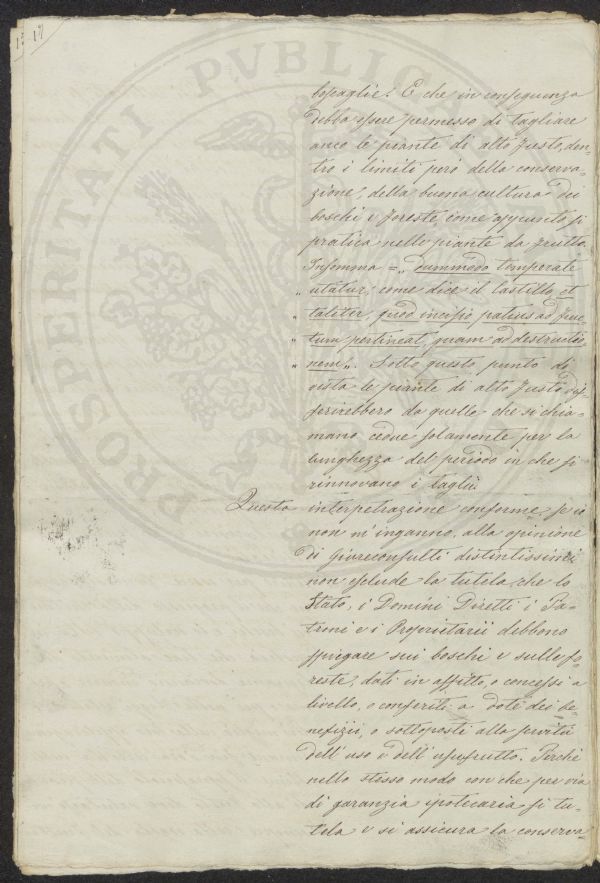 17
boscaglie. E che in conseguenza
debba essere permesso di tagliare
anco le piante di alto fusto, den-
tro i limiti però della conserva-
zione, della buona cultura dei
boschi e foreste, come appunto si
pratica nelle piante da frutto.
Insomma = „ dummodo temperate
„ utatur, come dice il Castillo, et
„ taliter, quod incisio potius ad fruc-
„ tum pertineat, quam ad destructio-
„ nem „. Sotto questo punto di
vista le piante di alto fusto dif-
ferirebbero da quelle che si chia-
mano cedue solamente per la
lunghezza del periodo in che si
rinnovano i taglii.
Questa interpetrazione conforme, se io
non m'inganno, alla opinione
di Giureconsulti distintissimi
non esclude la tutela, che lo
Stato, i Domini Diretti i Pa-
troni e i Proprietarii debbono
spiegare sui boschi e sulle fo-
reste, dati in affitto, o concessi a
livello, o conferiti a dote dei be-
nefizii, o sottoposti alla servitù
dell'uso e dell'usufrutto. Perchè
nello stesso modo con che per via
di garanzia ipotecaria si tu-
tela e si assicura la conserva-
PROSPERITATI PVBLIC